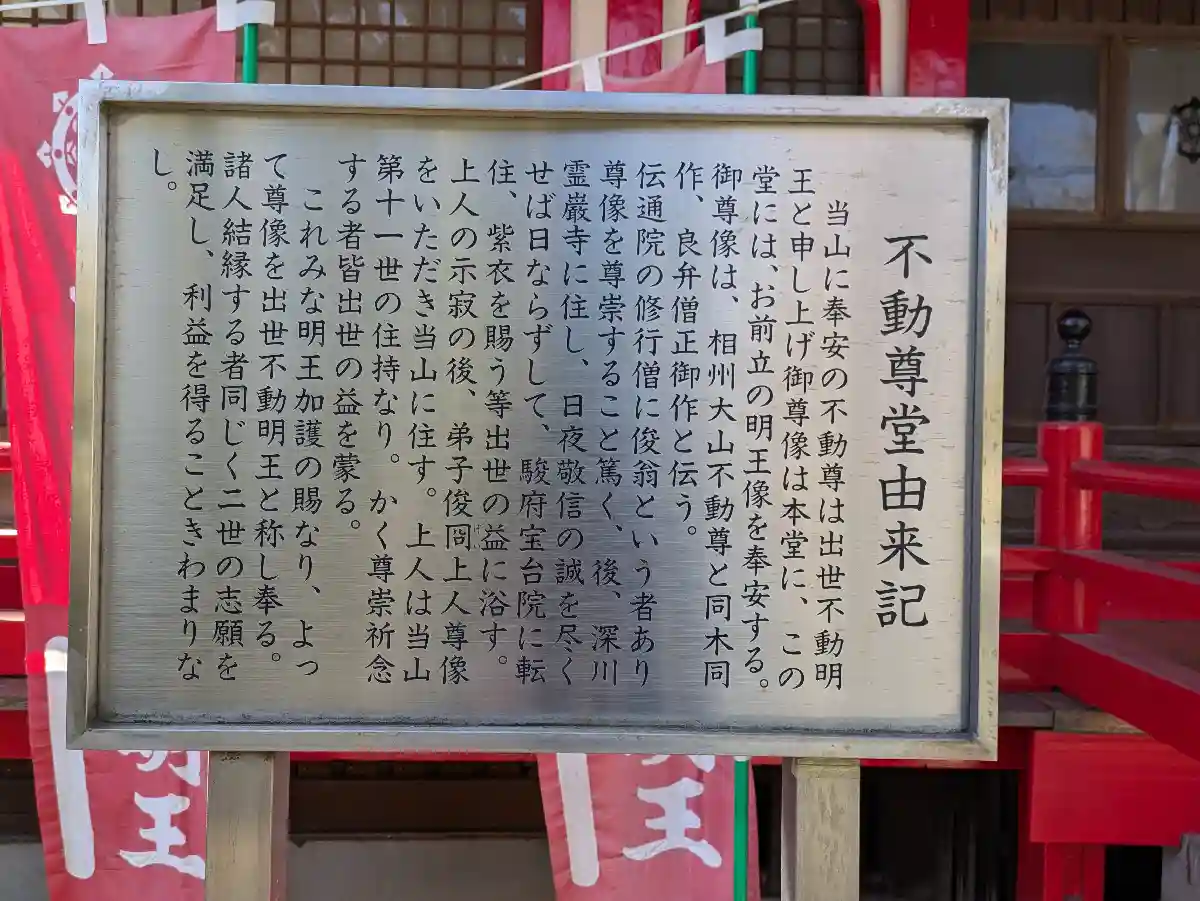 不動尊堂由来記
当山に奉安の不動尊は出世不動明
王と申し上げ御尊像は本堂に、この
堂には、お前立の明王像を奉安する。
御尊像は、相州大山不動尊と同木同
作、良弁僧正御作と伝う。
伝通院の修行僧に俊翁という者あり
尊像を尊崇すること篤く、後、深川
霊巌寺に住し、日夜敬信の誠を尽く
せば日ならずして、駿府宝台院に転
住、紫衣を賜う等出世の益に浴す。
上人の示寂の後、弟子俊冏上人尊像
をいただき当山に住す。上人は当山
第十一世の住持なり。かく尊崇祈念
する者皆出世の益を蒙る。
これみな明王加護の賜なり、よっ
て尊像を出世不動明王と称し奉る。
諸人結縁する者同じく二世の志願を
満足し、利益を得ることきわまりな
し。
明王
王